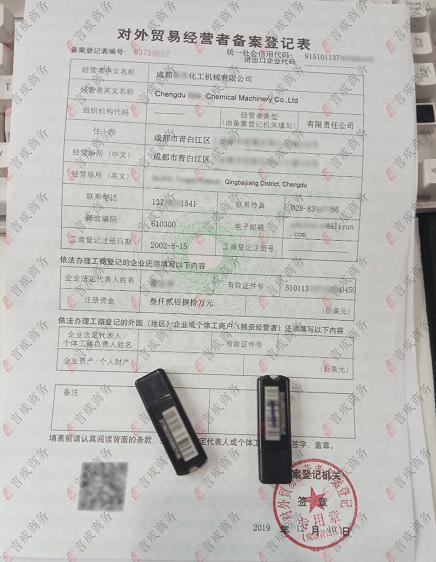 对外贸易经营者备案登记表
统一社会信用代码:
备案登记表编号: 0373
进出口企业代码 915101137
经营者中文名称 成都 化工机械有限公司
经营者英文名称 Chengdu Chemical Machinery Co.,Ltd
组织机构代码 经营者类型 (由备案登记机关填写) 有限责任公司
住 所 成都市青白江区
经营场所（中文） 成都市青白江区
经营场所（英文） Qingbaijiang District, Chengdu
联系电话 137 1541 联系传真 028-83 86
邮政编码 610300 电子邮箱 @aliyun.com
工商登记注册日期 2002-8-15 工商登记注册号
依法办理工商登记的企业还须填写以下内容
企业法定代表人姓名 有效证件号 510113 0450
注册资金 叁仟贰佰捌拾万元 (折美元)
依法办理工商登记的外国（地区）企业或个体工商户（独资经营者）还须填写以下内容
企业法定代表人/个体工商负责人姓名 有效证件号
企业资产/个人财产 (折美元)
备注
填表前请认真阅读背面的条款, 定代表人或个体工 签字、盖章。
案登记机关
签 章
对外贸易经营者备案登记
专用章
2019 年 12 月 10 日
言成商务